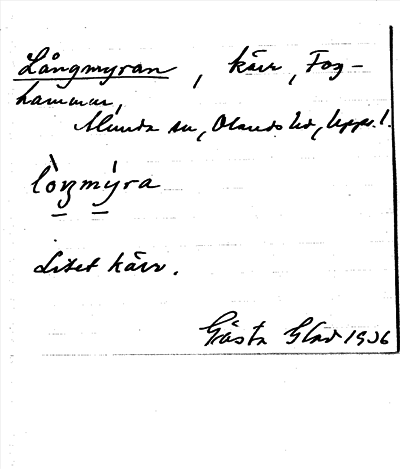 Långmyran, kärr, Fog-
hammar,
Alunda sn, Olands hd, Upps. l.
lòŋmýra
Litet kärr.
Gösta Glad 1936